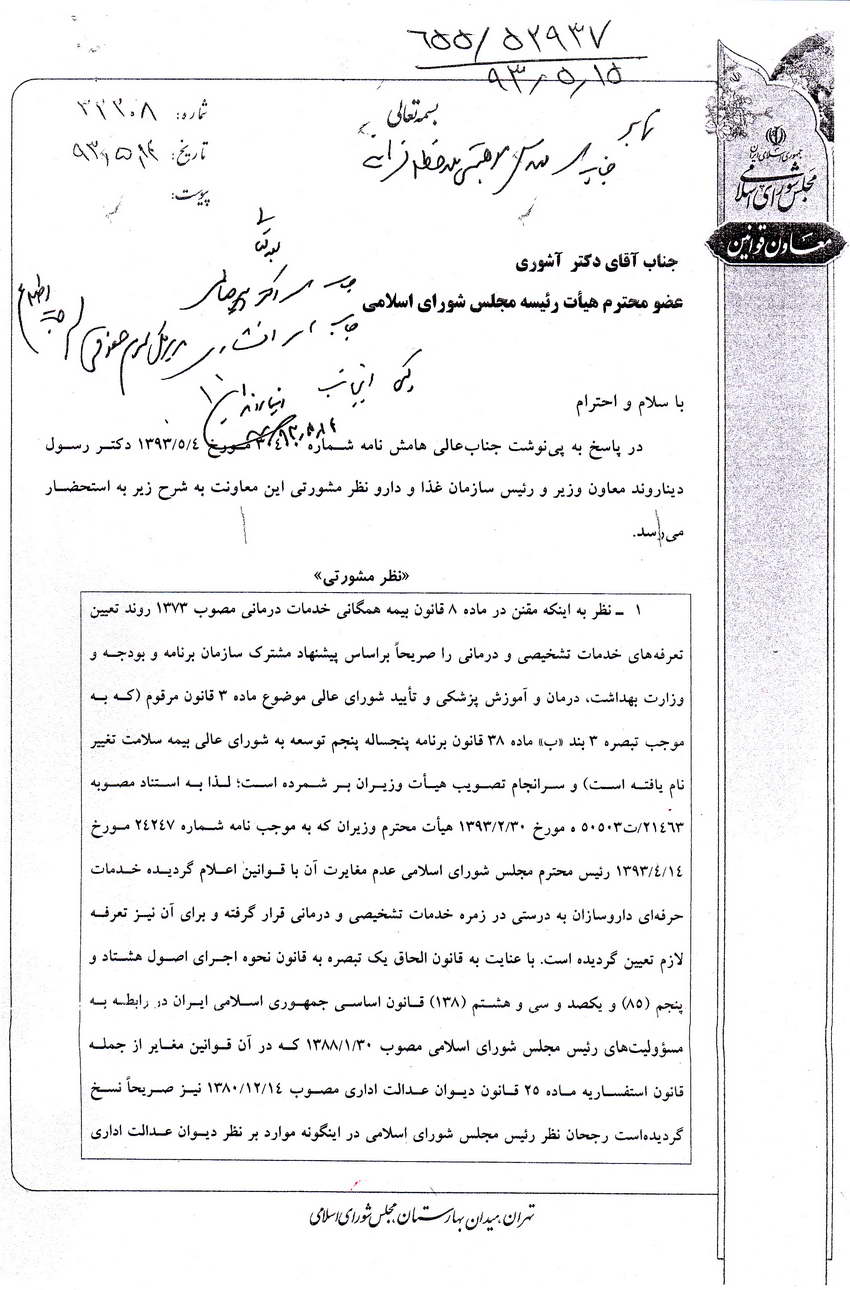 ۶۵۵/۵۲۹۳۷
۹۳/۵/۱۵
بسمه تعالی
شماره: ۳۲۲۰۸
تاریخ: ۹۳/۵/۱۴
پیوست:
جمهوری اسلامی ایران
مجلس شورای اسلامی
معاون قوانین
جناب آقای دکتر آشوری
عضو محترم هیأت رئیسه مجلس شورای اسلامی
با سلام و احترام
در پاسخ به پی‌نوشت جناب‌عالی هامش نامه شماره مورخ ۱۳۹۳/۵/۴ دکتر رسول
دیناروند معاون وزیر و رئیس سازمان غذا و دارو نظر مشورتی این معاونت به شرح زیر به استحضار
می‌رسد.
«نظر مشورتی»
۱ ـ نظر به اینکه مقنن در ماده ۸ قانون بیمه همگانی خدمات درمانی مصوب ۱۳۷۳ روند تعیین
تعرفه‌های خدمات تشخیصی و درمانی را صریحاً براساس پیشنهاد مشترک سازمان برنامه و بودجه و
وزارت بهداشت، درمان و آموزش پزشکی و تأیید شورای عالی موضوع ماده ۳ قانون مرقوم (که به
موجب تبصره ۳ بند «ب» ماده ۳۸ قانون برنامه پنجساله پنجم توسعه به شورای عالی بیمه سلامت تغییر
نام یافته است) و سرانجام تصویب هیأت وزیران بر شمرده است؛ لذا به استناد مصوبه
۲۱۴۶۳/ت۵۰۵۰۳ ه مورخ ۱۳۹۳/۲/۳۰ هیأت محترم وزیران که به موجب نامه شماره ۲۴۲۴۷ مورخ
۱۳۹۳/۴/۱۴ رئیس محترم مجلس شورای اسلامی عدم مغایرت آن با قوانین اعلام گردیده خدمات
حرفه‌ای داروسازان به درستی در زمره خدمات تشخیصی و درمانی قرار گرفته و برای آن نیز تعرفه
لازم تعیین گردیده است. با عنایت به قانون الحاق یک تبصره به قانون نحوه اجرای اصول هشتاد و
پنجم (۸۵) و یکصد و سی و هشتم (۱۳۸) قانون اساسی جمهوری اسلامی ایران در رابطه به
مسؤولیت‌های رئیس مجلس شورای اسلامی مصوب ۱۳۸۸/۱/۳۰ که در آن قوانین مغایر از جمله
قانون استفساریه ماده ۲۵ قانون دیوان عدالت اداری مصوب ۱۳۸۰/۱۲/۱۴ نیز صریحاً نسخ
گردیده‌است رجحان نظر رئیس مجلس شورای اسلامی در اینگونه موارد بر نظر دیوان عدالت اداری
تهران، میدان بهارستان، مجلس شورای اسلامی